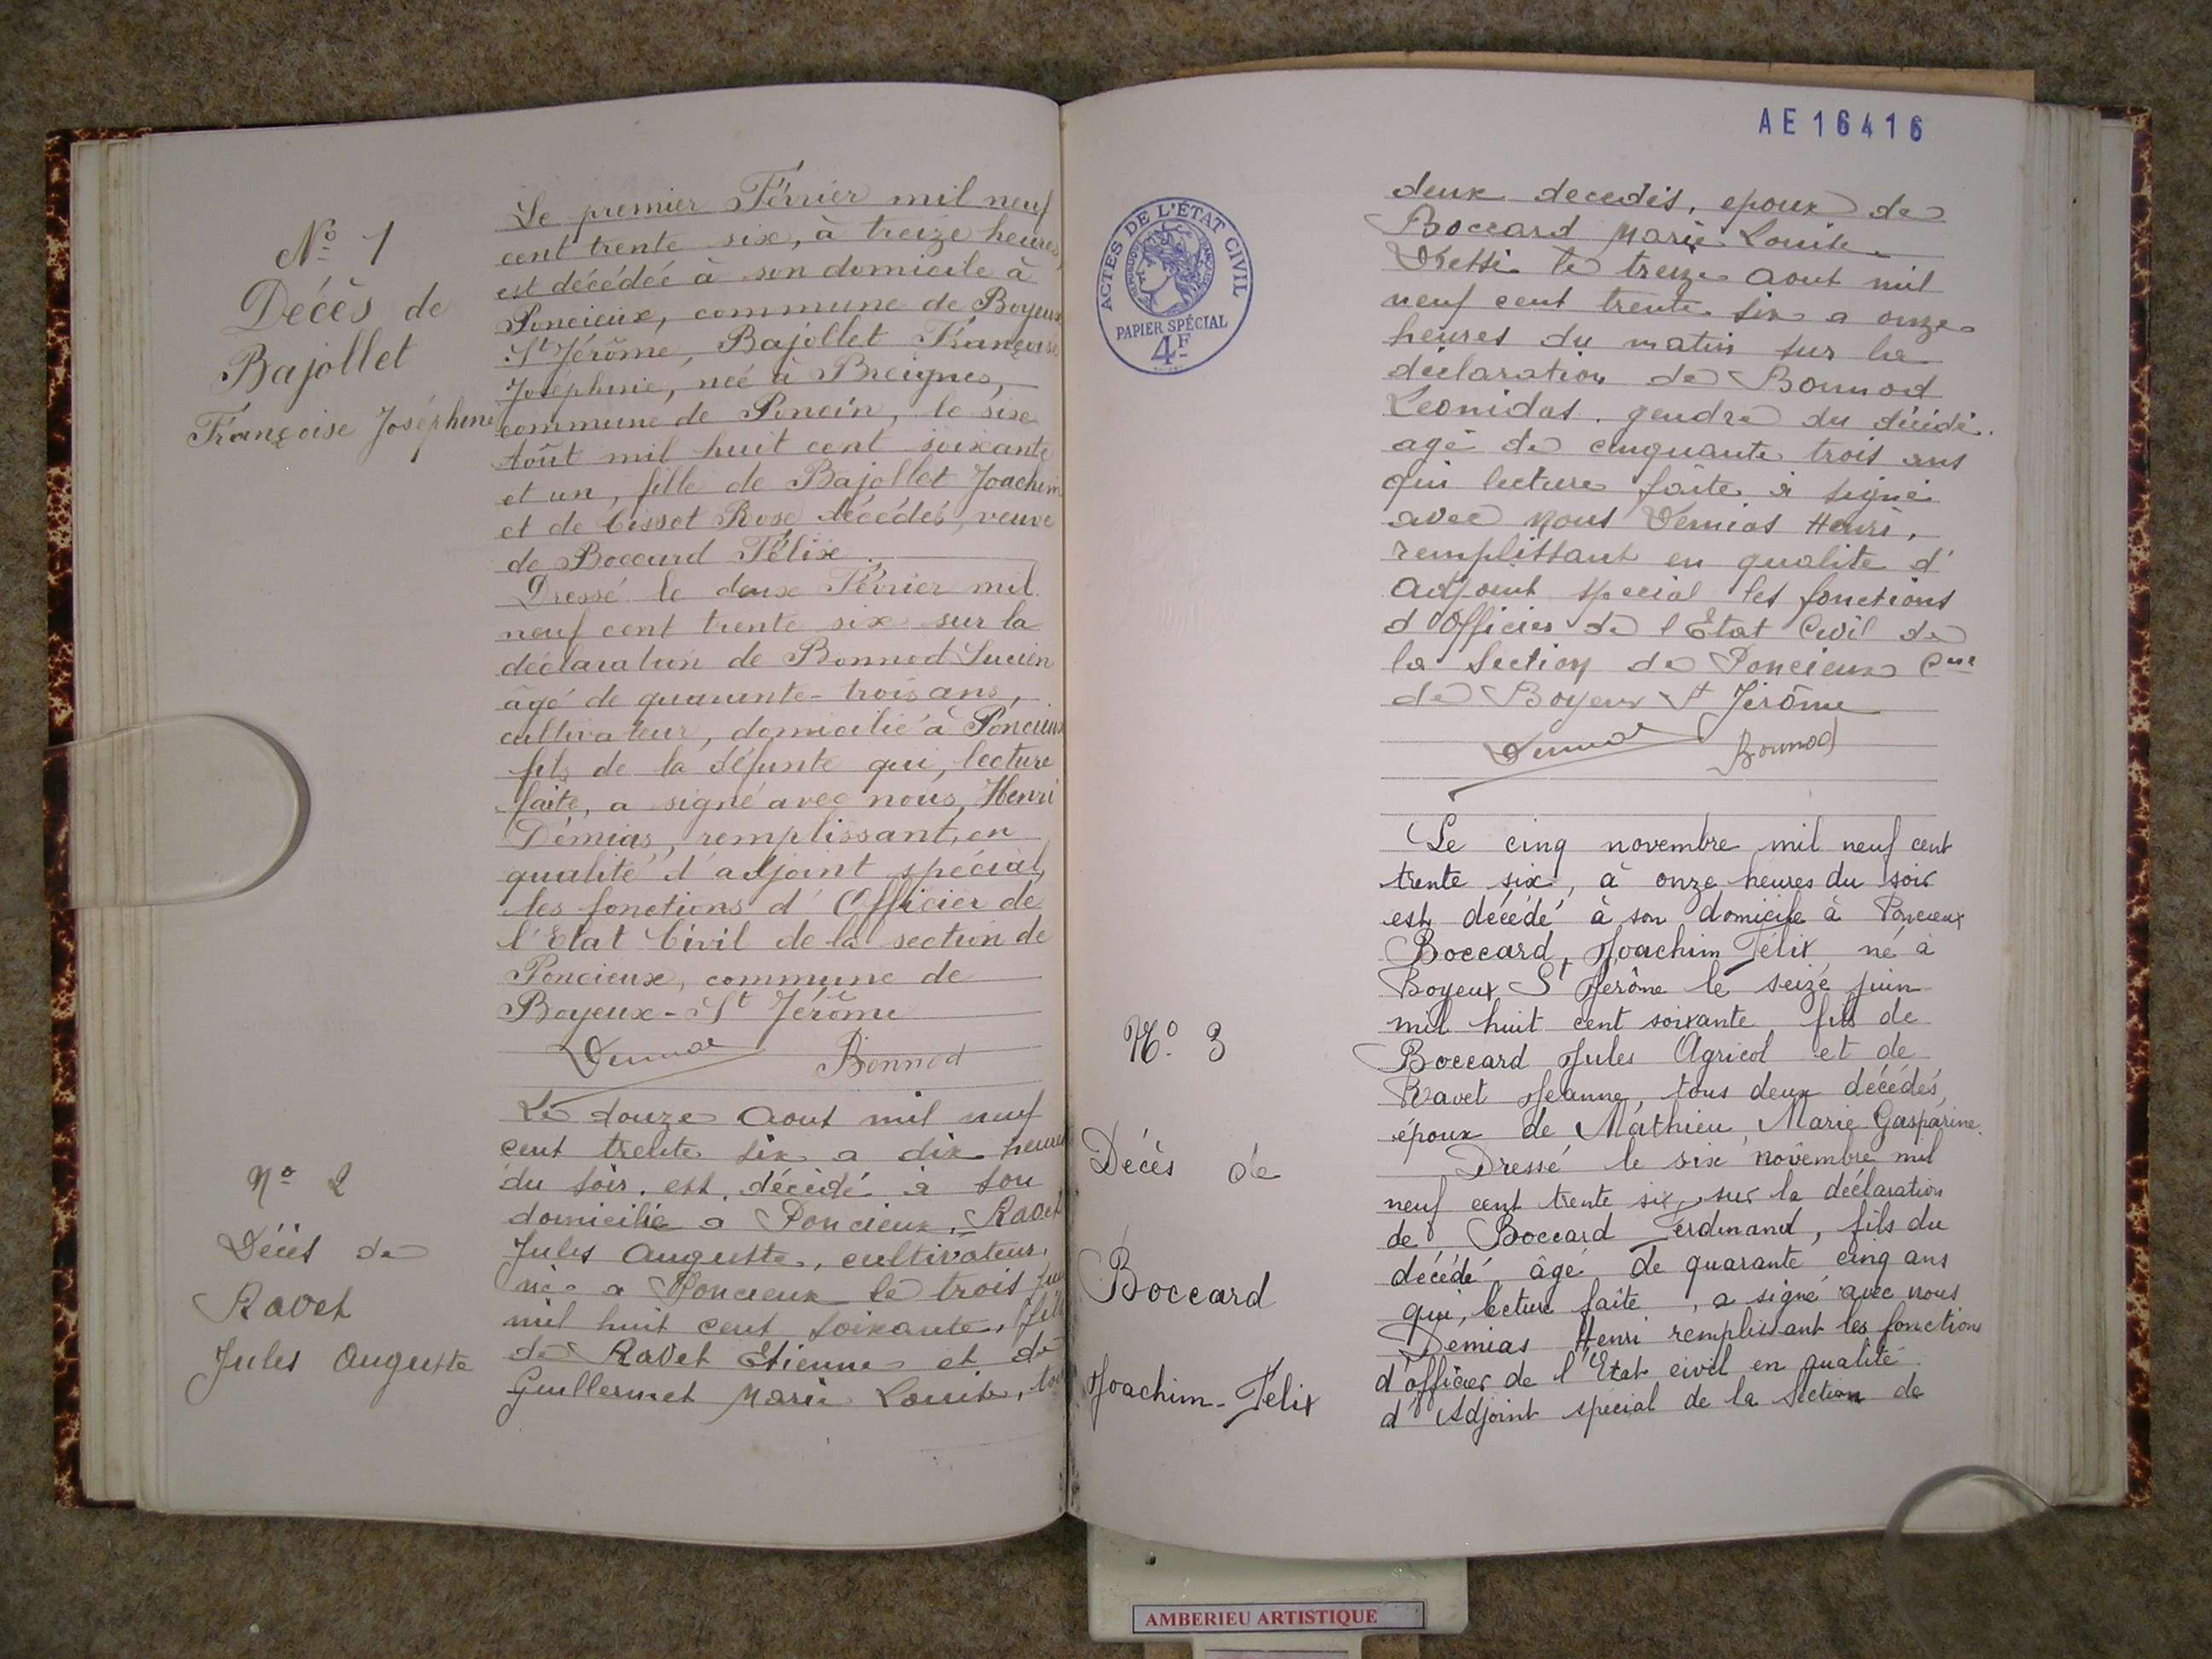 N° 1
Décès de
Bajollet
Françoise Joséphine
Le premier Février mil neuf
cent trente six, à treize heures,
est décédée à son domicile à
Poncieux, commune de Boyeux
St Jérôme, Bajollet Françoise
Joséphine, née à Breignes,
commune de Poncin, le six
Août mil huit cent soixante
et un, fille de Bajollet Joachim
et de Cissot Rose décédés, veuve
de Boccard Félix.
Dressé le deux Février mil
neuf cent trente six sur la
déclaration de Bonnod Lucien
âgé de quarante-trois ans,
cultivateur, domicilié à Poncieux
fils de la défunte qui, lecture
faite, a signé avec nous, Henri
Démias, remplissant, en
qualité d'adjoint spécial,
les fonctions d'Officier de
l'Etat Civil de la section de
Poncieux, commune de
Boyeux-St Jérôme
Demias Bonnod
N° 2
Décès de
Ravet
Jules Auguste
Le douze Aout mil neuf
cent trente six a dix heures
du soir. est décédé a son
domicilie a Poncieux. Ravet
Jules Auguste, cultivateur.
né a Poncieux le trois
mil huit cent soixante, fils
de Ravet Etienne et de
Guillermet Marie Louise,
AE16416
ACTES DE L'ÉTAT CIVIL
RÉPUBLIQUE FRANÇAISE
PAPIER SPÉCIAL
4F
deux decedés, epoux de
Boccard Marie Louise.
Dressé le treize aout mil
neuf cent trente six a onze
heures du matin sur la
déclaration de Bonnod
Leonidas. gendre du décédé.
agé de cinquante trois ans
qui lecture faite a signé
avec Nous Demias Henri,
remplissant en qualite d'
adjoint special les fonctions
d'Officier de l'Etat Civil de
la Section de Poncieux Cne
de Boyeux St Jérôme
Demias Bonnod
N° 3
Décès de
Boccard
Joachim-Félix
Le cinq novembre mil neuf cent
trente six, à onze heures du soir
est décédé à son domicile à Poncieux
Boccard, Joachim Félix né à
Boyeux St Jérôme le seize juin
mil huit cent soixante fils de
Boccard Jules Agricol et de
Ravet Jeanne, tous deux décédés,
époux de Mathieu, Marie Gasparine.
Dressé le six novembre mil
neuf cent trente six, sur la déclaration
de Boccard Ferdinand, fils du
décédé âgé de quarante cinq ans
qui, lecture faite, a signé avec nous
Demias Henri remplissant les fonctions
d'officier de l'Etat civil en qualité
d'Adjoint spécial de la Section de
AMBERIEU ARTISTIQUE